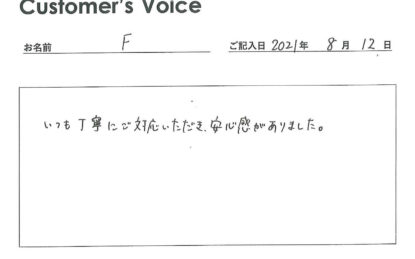 Customer's Voice
お名前 F ご記入日 2021年 8月 12日
いつも丁寧にご対応いただき、安心感がありました。